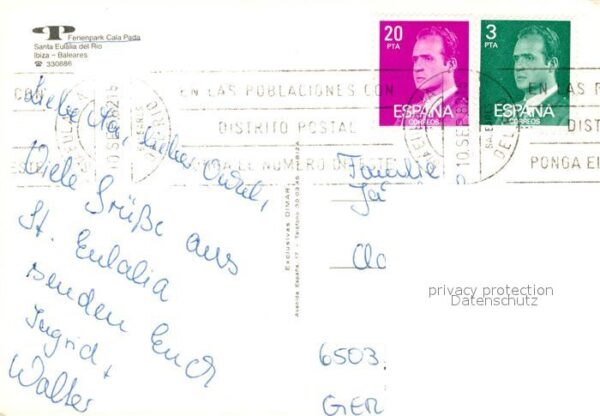 Ferienpark Cala Pada
Santa Eulalia del Rio
Ibiza – Baleares
☎ 330686
20
PTA
ESPAÑA
CORREOS
3
PTA
ESPAÑA
CORREOS
EN LAS POBLACIONES CON
DISTRITO POSTAL
PONGA EL NUMERO
EN LAS
DIST
PONGA E
10 SEP
Liebe
lieber
Viele Grüße aus
St. Eulalia
senden Euch
Ingrid +
Walter
Exclusivas DIMAR
Avenida España, 17 - Teléfono
Familie
6503
GER
privacy protection
Datenschutz